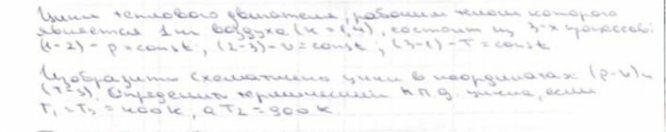 Цикл теплового двигателя, рабочим телом которого
является 1 кг воздуха (к = 1,4), состоит из 3-х процессов:
(1-2) - p = const, (2-3) - υ = const, (3-1) - T = const.
Изобразить схематично цикл в координатах (p-υ) и
(T-s). Определить термический к.п.д. цикла, если
T₁ = T₃ = 400 K, а T₂ = 900 K.